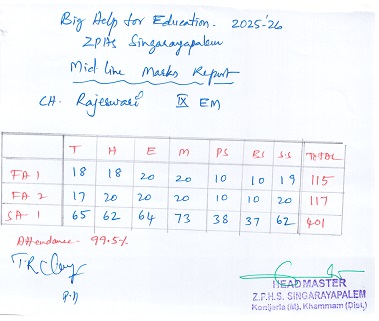 Big Help for Education. 2025-26
ZPHS Singarayapalem
Mid-line Marks Report
CH. Rajeswari IX EM
T H E M PS BS S.S TOTAL
FA 1 18 18 20 20 10 10 19 115
FA 2 17 20 20 20 10 10 20 117
SA-1 65 62 64 73 38 37 62 401
Attendance- 99.5%
HEADMASTER
Z.P.H.S. SINGARAYAPALEM
Konijerla (M), Khammam (Dist.)